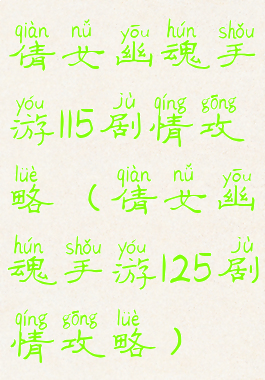 qiàn nǚ yōu hún shǒu
倩女幽魂手
yóu jù qíng gōng
游115剧情攻
lüè qiàn nǚ yōu
略（倩女幽
hún shǒu yóu jù
魂手游125剧
qíng gōng lüè
情攻略）